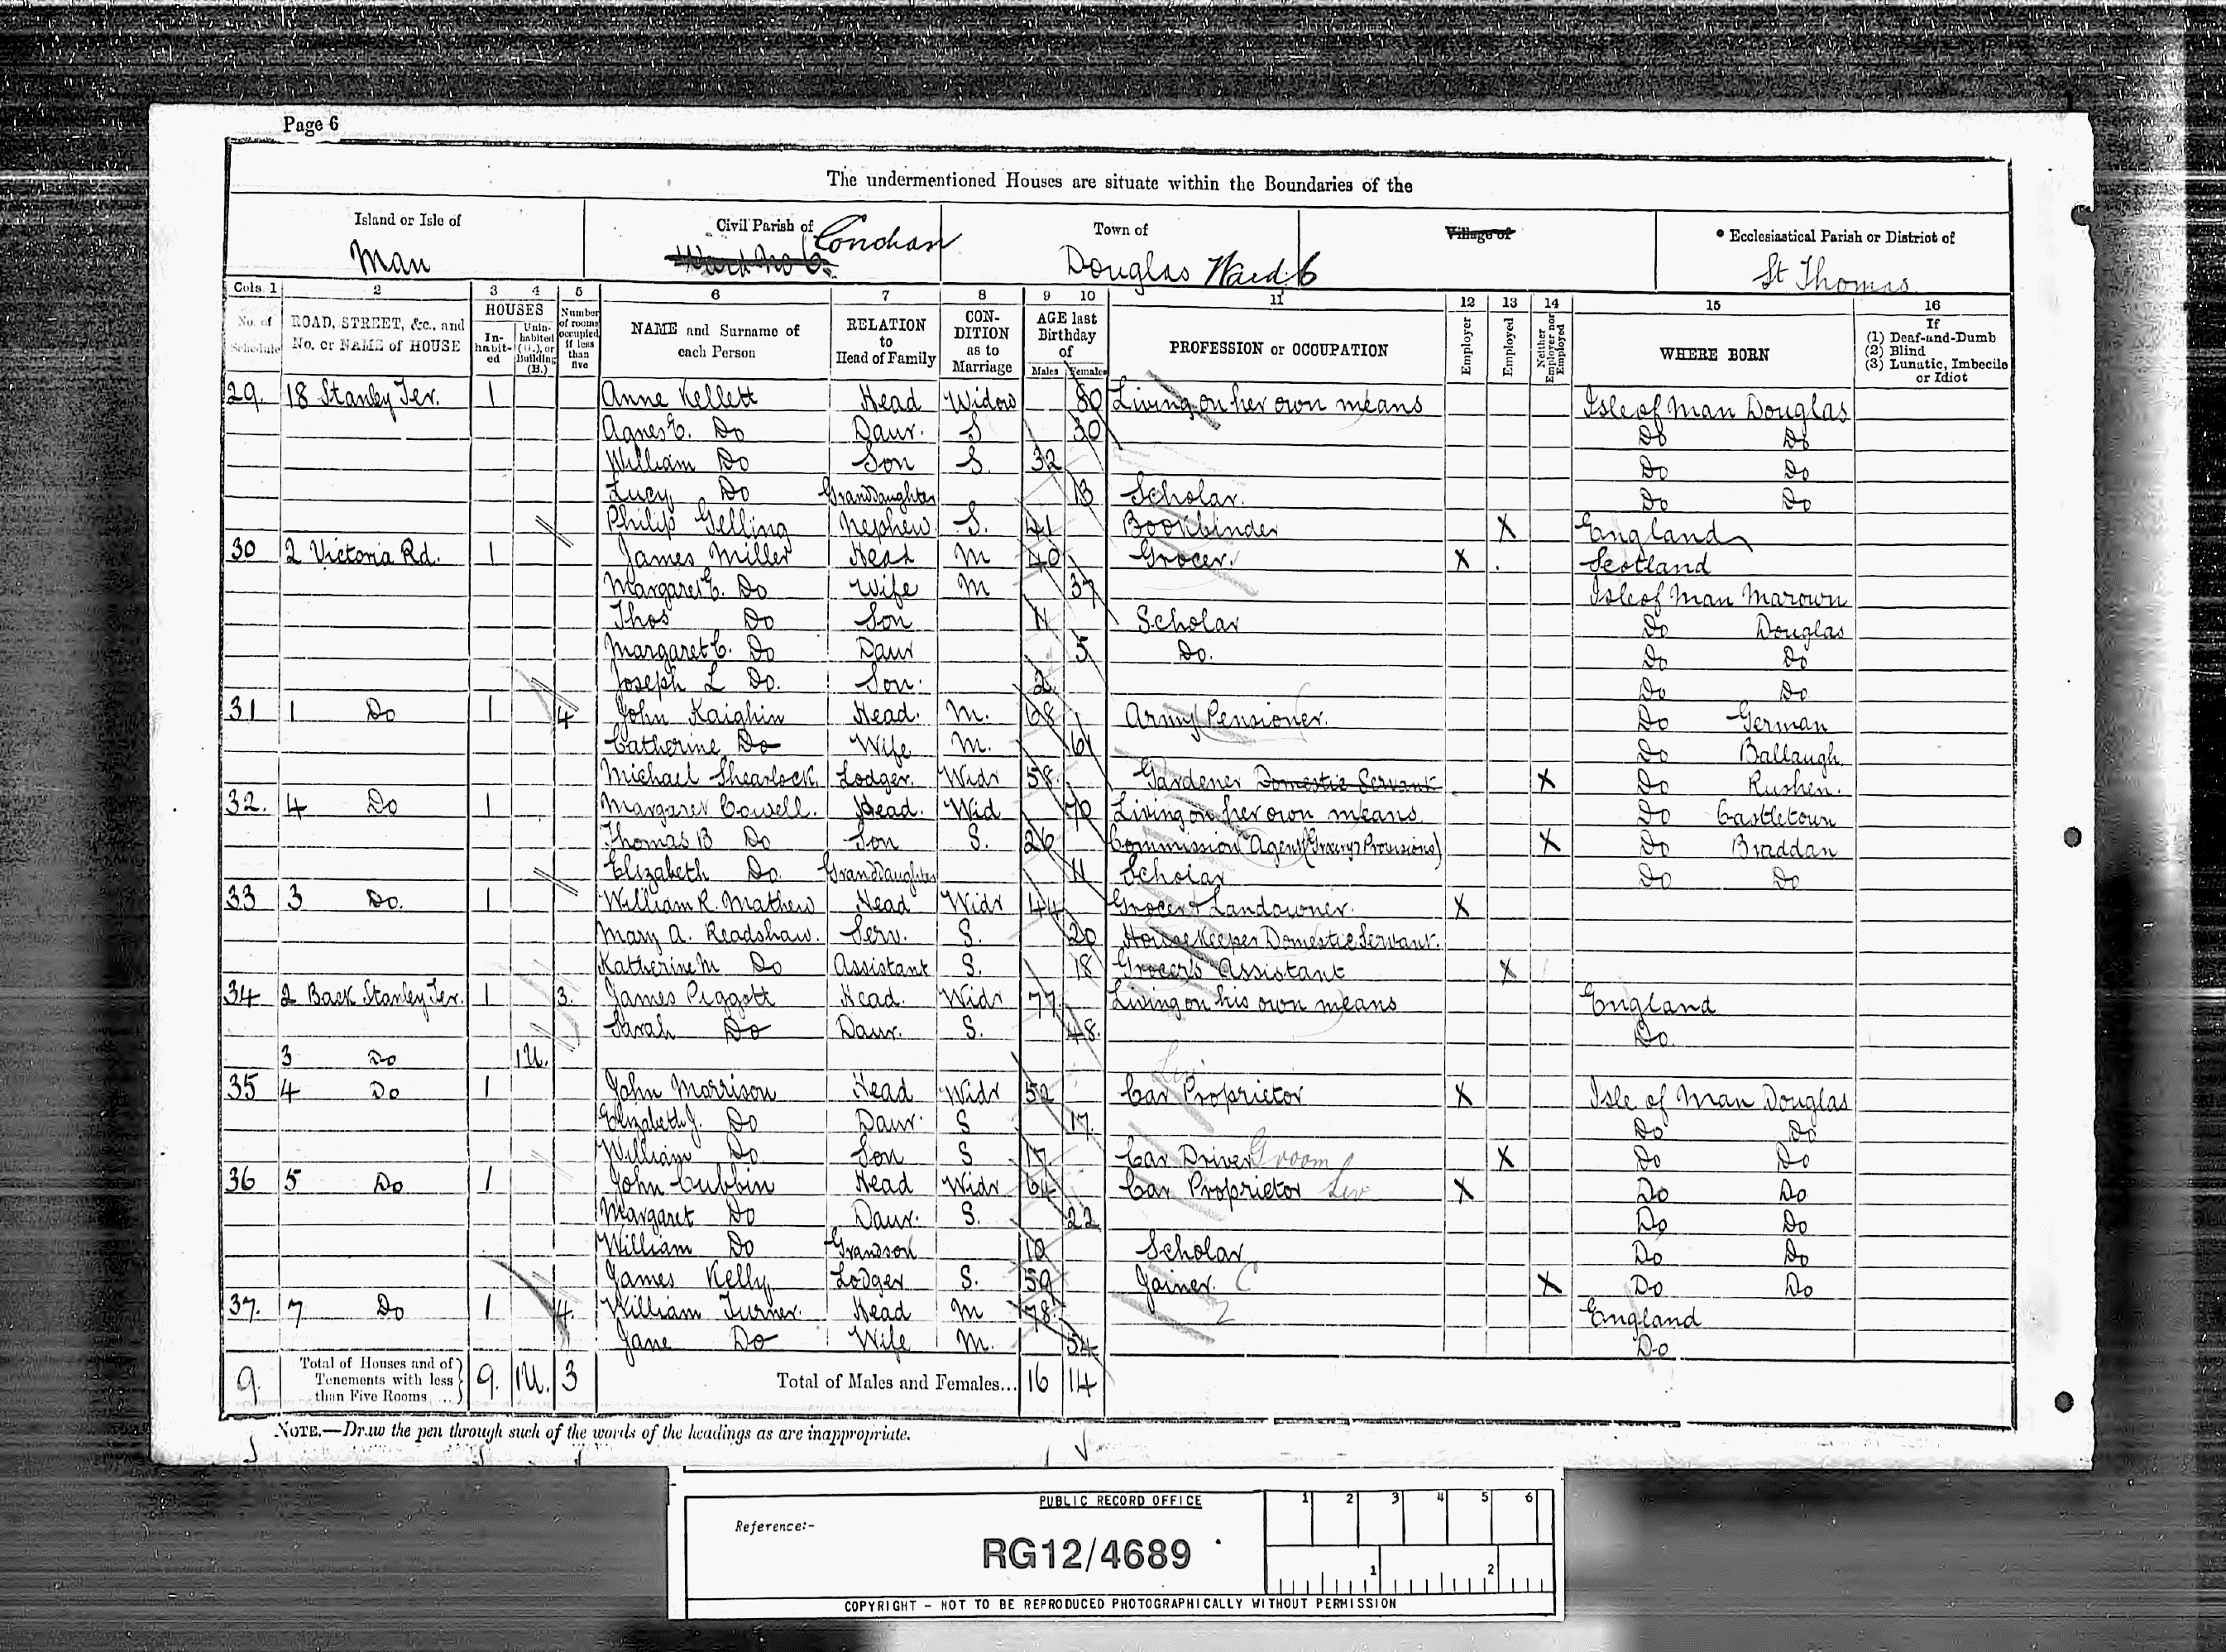 Page 6
The undermentioned Houses are situate within the Boundaries of the
Island or Isle of Man
Civil Parish of Conchan
Town of Douglas Ward 6
Village of
* Ecclesiastical Parish or District of St Thomas
Cols. 1 2 3 4 5 6 7 8 9 10 11 12 13 14 15 16
No. of Schedule
ROAD, STREET, &c., and No. or NAME of HOUSE
HOUSES
Inhabited
Uninhabited (U.), or Building (B.)
Number of rooms occupied if less than five
NAME and Surname of each Person
RELATION to Head of Family
CONDITION as to Marriage
AGE last Birthday of
Males Females
PROFESSION or OCCUPATION
Employer
Employed
Neither Employer nor Employed
WHERE BORN
If
(1) Deaf-and-Dumb
(2) Blind
(3) Lunatic, Imbecile or Idiot
29. 18 Stanley Ter. 1 Anne Kellett Head Widow 80 Living on her own means Isle of Man Douglas
Agnes E. Do Daur. S 30 Do Do
William Do Son S. 32 Do Do
Lucy Do Granddaughter 13 Scholar. Do Do
Philip Gelling Nephew S. 41 Bookbinder X England
30 2 Victoria Rd. 1 James Miller Head M 40 Grocer. X Scotland
Margaret E. Do Wife M 37 Isle of Man Marown
Thos Do Son 11 Scholar Do Douglas
Margaret C. Do Daur 5 Do. Do Do
Joseph L Do. Son. 2 Do Do
31 1 Do 1 4 John Kaighin Head. M. 68 Army Pensioner. Do German
Catherine Do Wife M. 61 Do Ballaugh
Michael Shearlock. Lodger. Widr 58. Gardener Domestic Servant X Do Rushen.
32. 4 Do 1 Margaret Cowell. Head. Wid 70 Living on her own means Do Castletown
Thomas B Do Son S. 26 Commission Agent (Grocery Provisions) X Do Braddan
Elizabeth Do. Granddaughter 11 Scholar Do Do
33 3 Do. 1 William R. Mathew Head Widr 44 Grocer & Landowner. X
Mary A. Readshaw. Serv. S. 20 Housekeeper Domestic Servant.
Katherine M Do Assistant S. 18 Grocer's Assistant X
34 2 Back Stanley Ter. 1 3. James Piggott Head. Widr 77 Living on his own means England
Sarah Do Daur. S. 48. Do.
3 Do 1U.
35 4 Do 1 John Morrison Head Widr 52 Car Proprietor X Isle of Man Douglas
Elizabeth J. Do Daur. S 17. Do Do
William Do. Son S 17. Car Driver Groom X Do Do
36 5 Do 1 John Cubbin Head Widr 64 Car Proprietor X Do Do
Margaret Do Daur. S. 22 Do Do
William Do Grandson 10 Scholar Do Do
James Kelly Lodger S. 59 Joiner. C X Do Do
37. 7 Do 1 4. William Turner. Head M 78. England
Jane Do Wife M. 54 Do
9. Total of Houses and of Tenements with less than Five Rooms 9. 1U. 3 Total of Males and Females... 16 14
NOTE.—Draw the pen through such of the words of the headings as are inappropriate.
PUBLIC RECORD OFFICE
1 2 3 4 5 6
Reference:-
RG12/4689
1 2
COPYRIGHT - NOT TO BE REPRODUCED PHOTOGRAPHICALLY WITHOUT PERMISSION